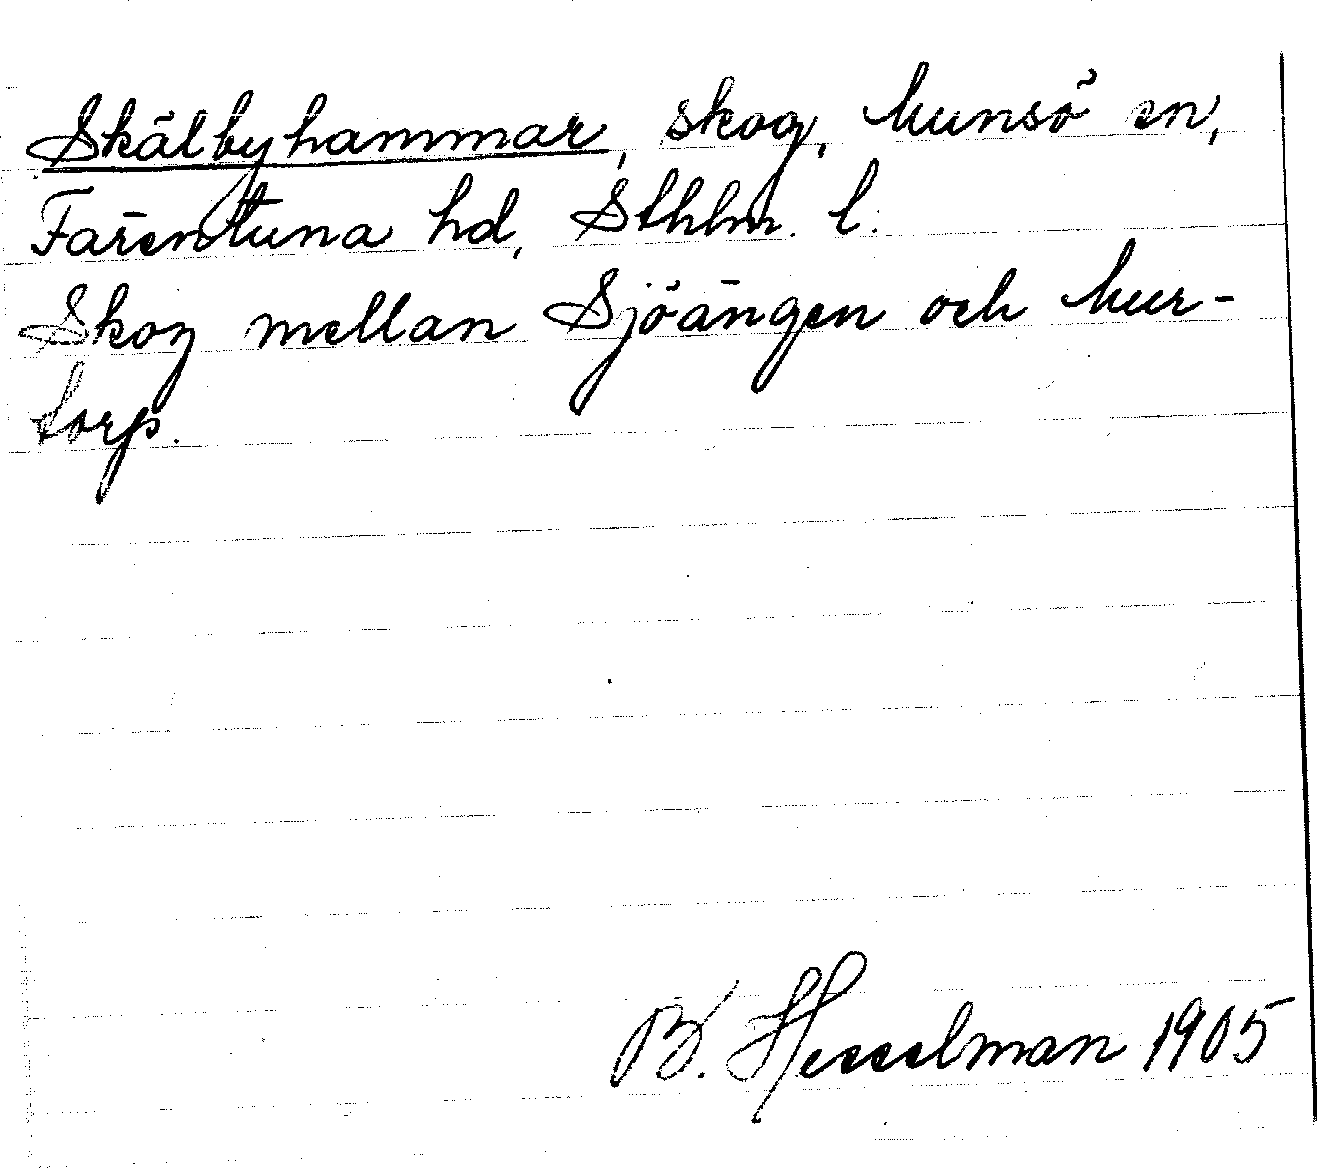 Skälbyhammar, skog, Munsö sn,
Färentuna hd, Sthlm. l.
Skog mellan Sjöängen och Mur-
torp.
B. Hesselman 1905